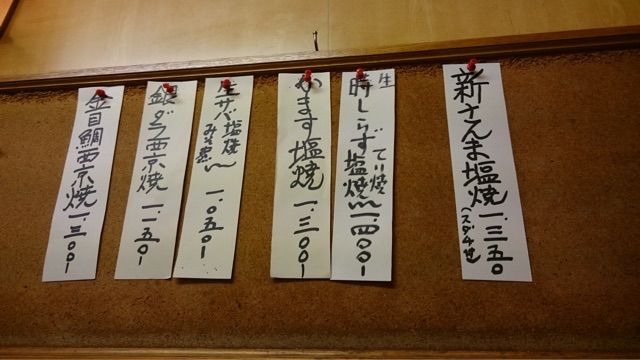 新さんま塩焼 一.三五〇
(スダチ付)
生
時しらず塩焼 一.四〇〇
てり焼
かます塩焼 一.三〇〇
生サバ塩焼 一.〇五〇
みそ煮
銀ダラ西京焼 一.一五〇
金目鯛西京焼 一.三〇〇